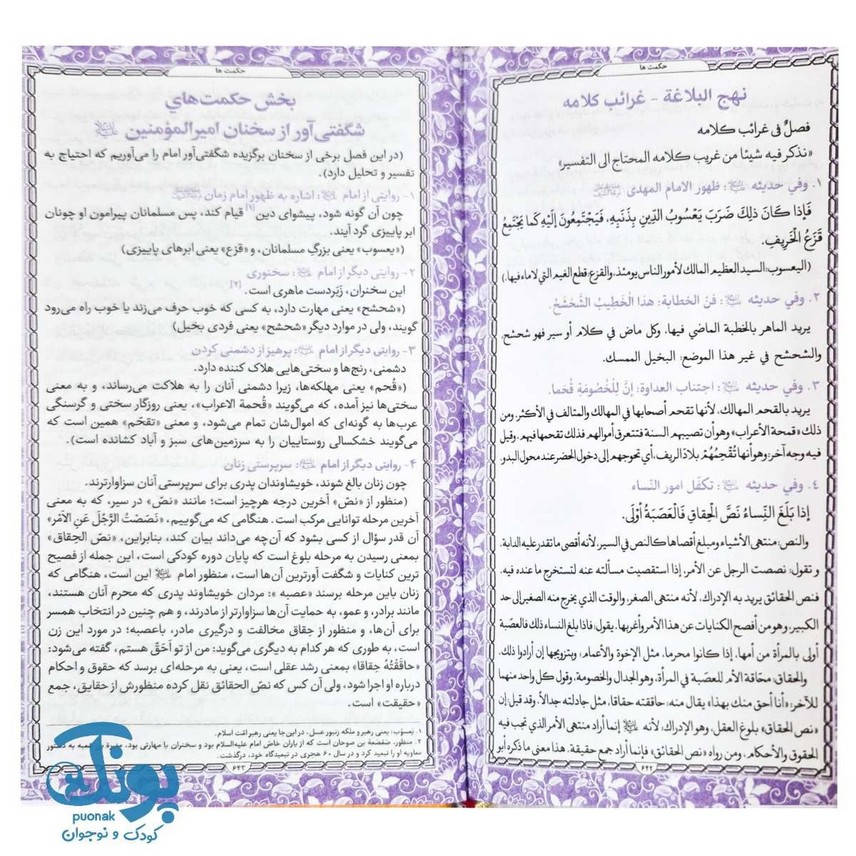 حکمت ها
نهج البلاغة - غرائب كلامه
فصلٌ في غرائب كلامه
«نذكر فيه شيئا من غريب كلامه المحتاج الى التفسير»
۱. وفي حديثه: ظهور الامام المهدى
فَإِذَا كَانَ ذٰلِكَ ضَرَبَ يَعْسُوبُ الدِّينِ بِذَنَبِهِ، فَيَجْتَمِعُونَ إِلَيْهِ كَمَا يَجْتَمِعُ
قَزَعُ الْخَرِيفِ.
(اليعسوب: السيد العظيم المالك لأمور الناس يومئذ، والقزع: قطع الغيم التي لاماء فيها.)
۲. وفي حديثه: فنّ الخطابة: هذَا الْخَطِيبُ الشَّحْشَحُ.
يريد الماهر بالخطبة الماضي فيها، وكل ماض في كلام أو سير فهو شحشح،
والشحشح في غير هذا الموضع: البخيل الممسك.
۳. وفي حديثه: اجتناب العداوة: إِنَّ لِلْخُصُومَةِ قُحَما.
يريد بالقحم المهالك، لأنها تقحم أصحابها في المهالك والمتالف في الأكثر، ومن
ذلك «قمحة الأعراب» وهو أن تصيبهم السنة فتتعرق أموالهم فذلك تقحمها فيهم. وقيل
فيه وجه آخر: وهو أنها تُقْحِمُهُمْ بلاد الريف، أي تحوجهم إلى دخول الحضر عند محول البدو.
۴. وفي حديثه: تكفّل امور النّساء
إذا بَلَغَ النِّساءُ نَصَّ الْحِقاقِ فَالْعَصَبَةُ أَوْلَى.
والنص: منتهى الأشياء ومبلغ أقصاها كالنص في السير، لأنه أقصى ما تقدر عليه الدابة.
و تقول: نصصت الرجل عن الأمر، إذا استقصيت مسألته عنه لتستخرج ما عنده فيه.
فنص الحقائق يريد به الإدراك، لأنه منتهى الصغر، والوقت الذي يخرج منه الصغير إلى حد
الكبير، وهو من أفصح الكنايات عن هذا الأمر وأغربها. يقول: فاذا بلغ النساء ذلك فالعصَبة
أولى بالمرأة من أمها، إذا كانوا محرما، مثل الإخوة والأعمام، وبتزويجها إن أرادوا ذلك.
والحقاق: محاقة الأم للعصبة في المرأة، وهو الجدال والخصومة، وقول كل واحد منهما
للآخر: «أنا أحق منك بهذا» يقال منه: حاققته حقاقا، مثل جادلته جدالاً. وقد قيل: إن
«نص الحقاق» بلوغ العقل، وهو الإدراك، لأنه إنما أراد منتهى الأمر الذي تجب فيه
الحقوق والأحكام. ومن رواه «نص الحقائق» فإنما أراد جمع حقيقة. هذا معنى ما ذكره أبو
۶۴۲
حکمت ها
بخش حکمت‌های
شگفتی‌آور از سخنان امیرالمؤمنین
(در این فصل برخی از سخنان برگزیده شگفتی‌آور امام را می‌آوریم که احتیاج به
تفسیر و تحلیل دارد).
۱- روایتی از امام: اشاره به ظهور امام زمان
چون آن گونه شود، پیشوای دین [۱] قیام کند، پس مسلمانان پیرامون او چونان
ابر پاییزی گرد آیند.
(«یعسوب» یعنی بزرگِ مسلمانان، و «قزع» یعنی ابرهای پاییزی)
۲- روایتی دیگر از امام: سخنوری
این سخنران، زَبَردست ماهری است. [۲]
(«شحشح» یعنی مهارت دارد، به کسی که خوب حرف می‌زند یا خوب راه می‌رود
گویند، ولی در موارد دیگر «شحشح» یعنی فردی بخیل)
۳- روایتی دیگر از امام: پرهیز از دشمنی کردن
دشمنی، رنج‌ها و سختی‌هایی هلاک کننده دارد.
(«قُحم» یعنی مهلکه‌ها، زیرا دشمنی آنان را به هلاکت می‌رساند، و به معنی
سختی‌ها نیز آمده، که می‌گویند «قُحمة الاعراب»، یعنی روزگار سختی و گرسنگی
عرب‌ها به گونه‌ای که اموالشان تمام می‌شود، و معنی «تقحّم» همین است که
می‌گویند خشکسالی روستاییان را به سرزمین‌های سبز و آباد کشانده است).
۴- روایتی دیگر از امام: سرپرستی زنان
چون زنان بالغ شوند، خویشاوندان پدری برای سرپرستی آنان سزاوارترند.
(منظور از «نصّ» آخرین درجه هرچیز است؛ مانند «نصّ» در سیر، که به معنی
آخرین مرحله توانایی مرکب است. هنگامی که می‌گوییم، «نَصَصْتُ الرَّجُلَ عَنِ الاَمْرِ»
آن قدر سؤال از کسی بشود که آن‌چه می‌داند بیان کند، بنابراین، «نصّ الحِقاق»
بمعنی رسیدن به مرحله بلوغ است که پایان دوره کودکی است، این جمله از فصیح
ترین کنایات و شگفت آورترین آن‌ها است، منظور امام این است، هنگامی که
زنان باین مرحله برسند «عصبه»: مردان خویشاوند پدری که محرم آنان هستند،
مانند برادر، و عمو، به حمایت آن‌ها سزاوارتر از مادرند، و هم چنین در انتخاب همسر
برای آن‌ها، و منظور از حِقاق مخالفت و درگیری مادر، با عصبه؛ در مورد این زن
است، به طوری که هر کدام به دیگری می‌گوید: من از تو اَحَقّ هستم، گفته می‌شود:
«حاقَقْتُهُ حِقاقا» بمعنی رشد عقلی است، یعنی به مرحله‌ای برسد که حقوق و احکام
درباره او اجرا شود، ولی آن کس که نصّ الحقائق نقل کرده منظورش از حقایق، جمع
«حقیقت» است.
۱. یعسوب، یعنی رهبر و ملکه زنبور عسل، در این جا یعنی رهبر امّت اسلام.
۲. منظور، صَعْصَعة بن صوحان است که از یاران خاص امام علیه‌السلام بود و سخنران با مهارتی بود،
معاویه او را تبعید کرد و در سال ۶۰ هجری در تبعیدگاه خود، درگذشت.
۶۴۳
پونک
puonak
کودک و نوجوان